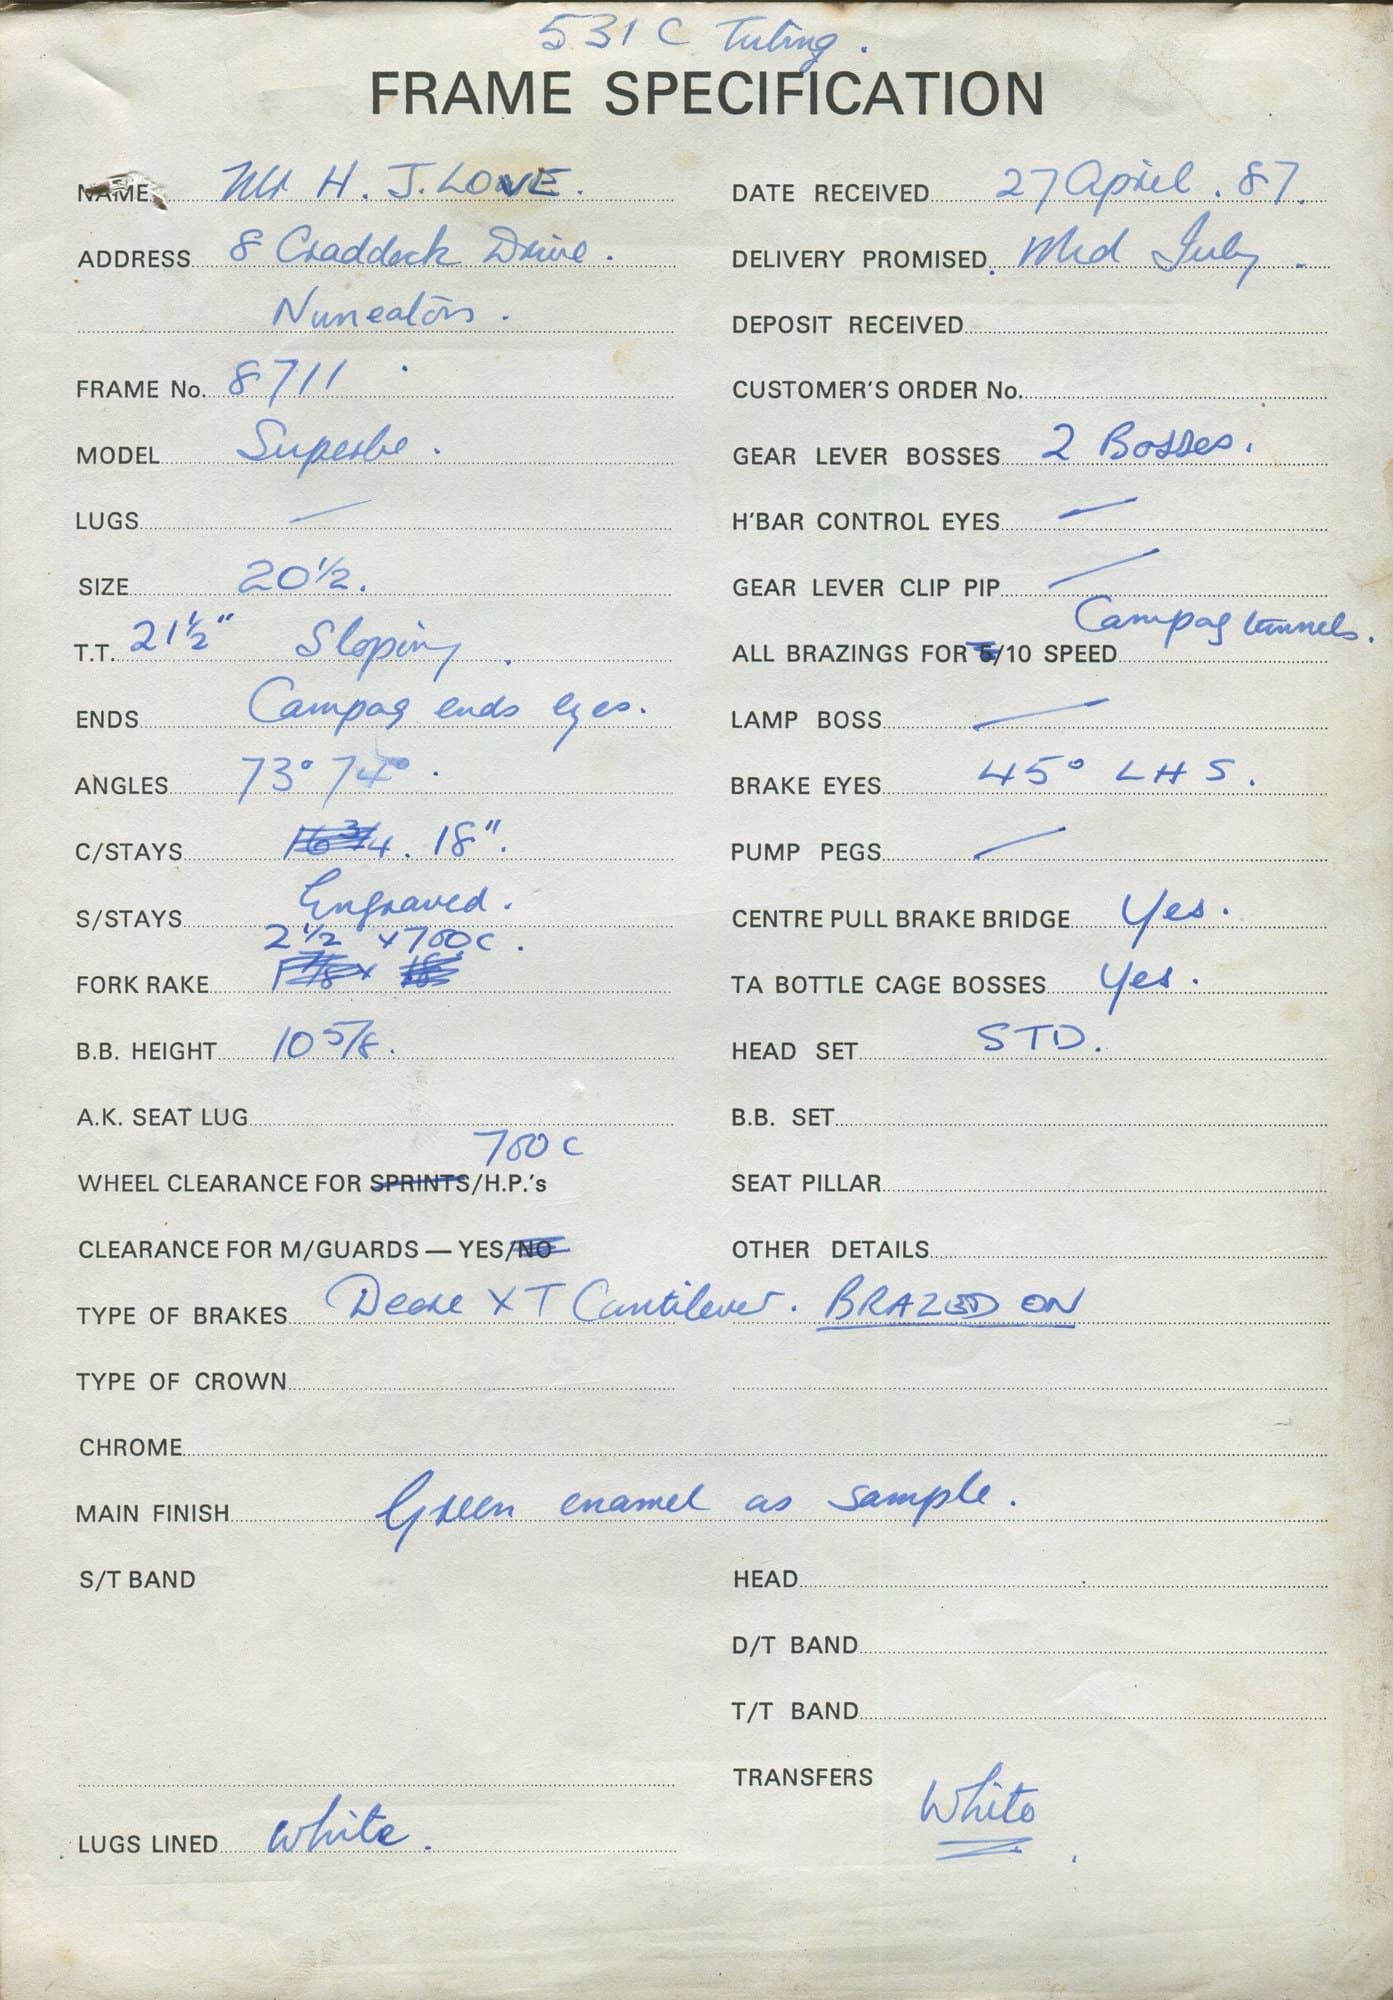 531 C Tubing.
FRAME SPECIFICATION
NAME Mr H. J. LOVE.
ADDRESS 8 Craddock Drive.
Nuneaton.
FRAME No. 8711
MODEL Superbe.
LUGS —
SIZE 20½.
T.T. 21½" Sloping.
ENDS Campag ends eyes.
ANGLES 73° 74°.
C/STAYS 16¾. 18".
S/STAYS Engraved.
2½ x 700c.
FORK RAKE
B.B. HEIGHT 10 5/8.
A.K. SEAT LUG
700 c
WHEEL CLEARANCE FOR SPRINTS/H.P.'s
CLEARANCE FOR M/GUARDS — YES/NO
DATE RECEIVED 27 April. 87.
DELIVERY PROMISED. Mid July.
DEPOSIT RECEIVED
CUSTOMER'S ORDER No.
GEAR LEVER BOSSES 2 Bosses.
H'BAR CONTROL EYES —
GEAR LEVER CLIP PIP —
Campag tunnels.
ALL BRAZINGS FOR 5/10 SPEED
LAMP BOSS —
BRAKE EYES 45° LHS.
PUMP PEGS —
CENTRE PULL BRAKE BRIDGE Yes.
TA BOTTLE CAGE BOSSES Yes.
HEAD SET STD.
B.B. SET
SEAT PILLAR
OTHER DETAILS
TYPE OF BRAKES Deore XT Cantilever. BRAZED ON
TYPE OF CROWN
CHROME
MAIN FINISH Green enamel as sample.
S/T BAND
LUGS LINED white.
HEAD
D/T BAND
T/T BAND
TRANSFERS
White